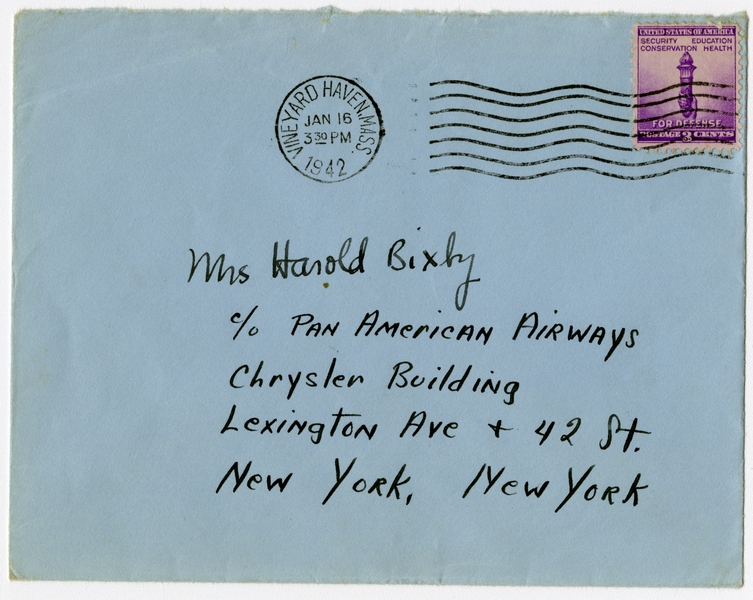 VINEYARD HAVEN, MASS.
JAN 16
3 30 PM
1942
UNITED STATES OF AMERICA
SECURITY EDUCATION
CONSERVATION HEALTH
FOR DEFENSE
POSTAGE 3 CENTS
Mrs Harold Bixby
c/o Pan American Airways
Chrysler Building
Lexington Ave + 42 St.
New York, New York